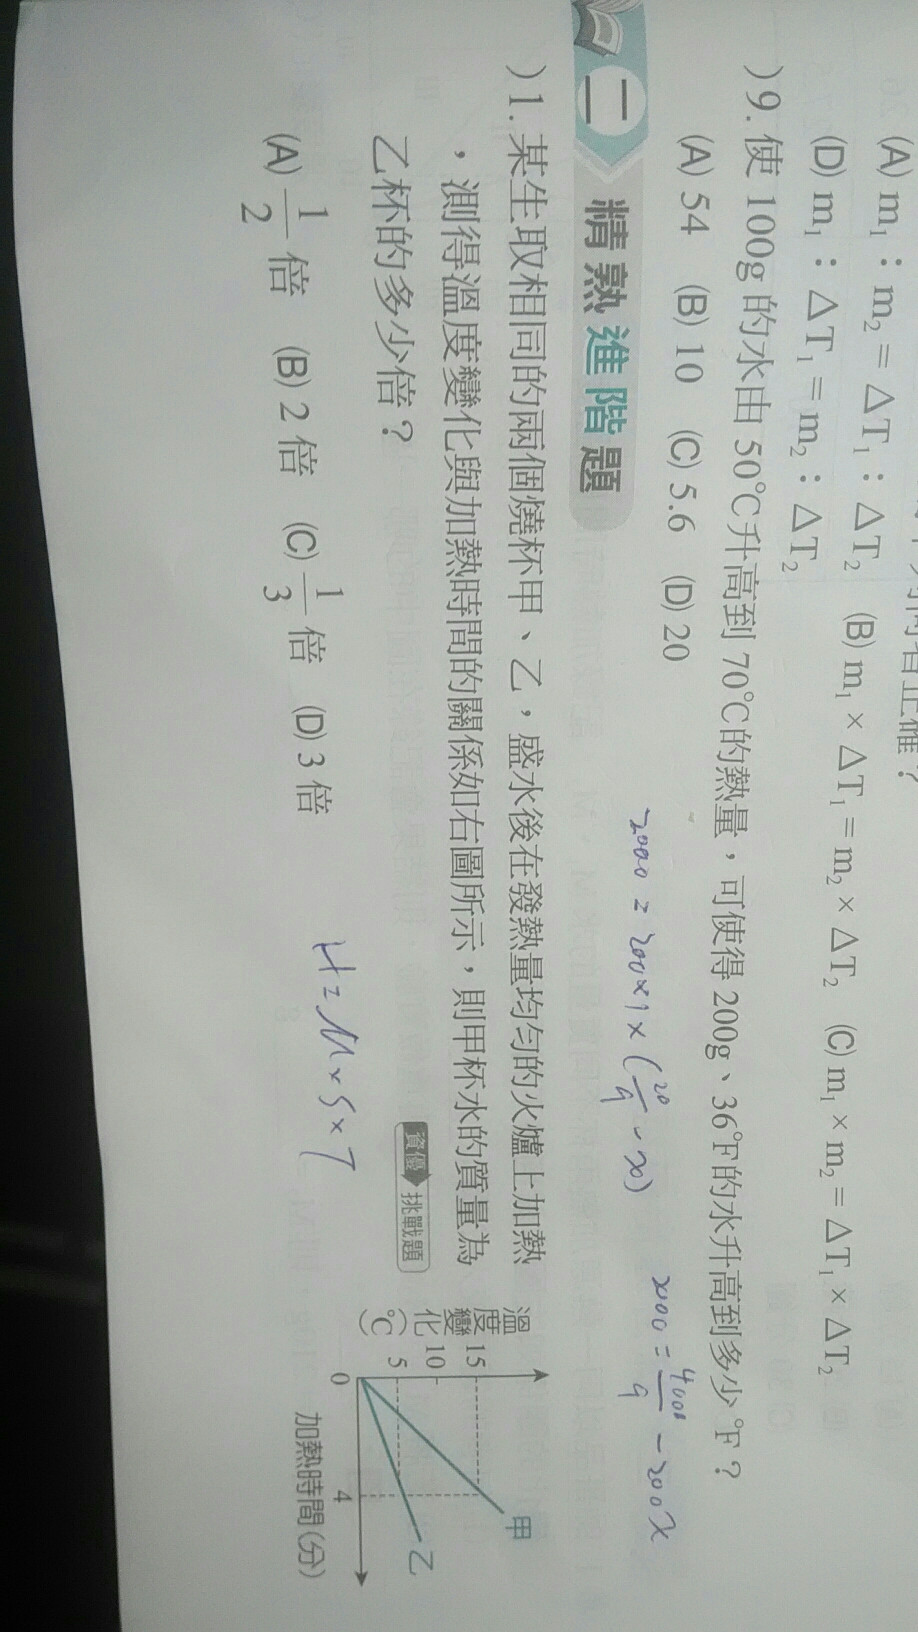 (A) m₁：m₂ = △T₁：△T₂ (B) m₁ × △T₁ = m₂ × △T₂ (C) m₁ × m₂ = △T₁ × △T₂
(D) m₁：△T₁ = m₂：△T₂
)9. 使 100g 的水由 50℃升高到 70℃的熱量，可使得 200g、36℉的水升高到多少℉？
(A) 54 (B) 10 (C) 5.6 (D) 20
2000 = 200×1×(20/9 - x)
2000 = 4000/9 - 200x
二 精熟進階題
)1. 某生取相同的兩個燒杯甲、乙，盛水後在發熱量均勻的火爐上加熱
，測得溫度變化與加熱時間的關係如右圖所示，則甲杯水的質量為
乙杯的多少倍？
資優 挑戰題
(A) 1/2 倍 (B) 2 倍 (C) 1/3 倍 (D) 3 倍
H = M × S × T
溫度變化(℃)
15
10
5
0
4
甲
乙
加熱時間(分)